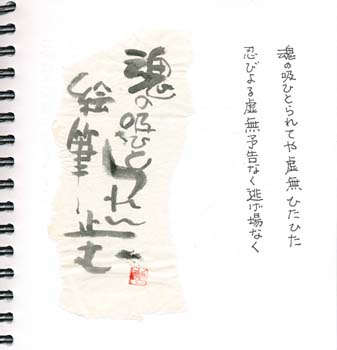 魂の吸ひとられてや虚無ひたひた
忍びよる虚無予告なく逃げ場なく
魂の吸ひとられし
絵筆止む